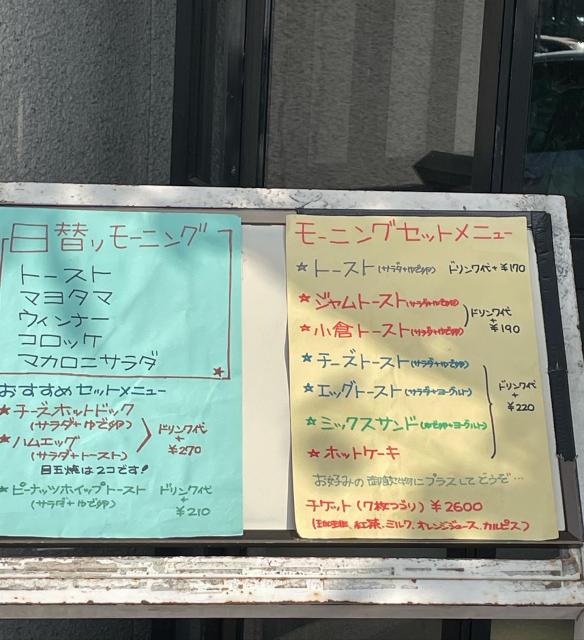 日替りモーニング
トースト
マヨタマ
ウィンナー
コロッケ
マカロニサラダ
おすすめセットメニュー
★チーズホットドック
(サラダ+ゆで卵)
★ハムエッグ
(サラダ+トースト)
ドリンク代
+
¥270
目玉焼は2コです!
★ピーナッツホイップトースト
(サラダ+ゆで卵)
ドリンク代
+
¥210
モーニングセットメニュー
★トースト(サラダ+ゆで卵) ドリンク代+¥170
★ジャムトースト(サラダ+ゆで卵)
★小倉トースト(サラダ+ゆで卵)
ドリンク代
+
¥190
★チーズトースト(サラダ+ゆで卵)
★エッグトースト(サラダ+ヨーグルト)
★ミックスサンド(ゆで卵+ヨーグルト)
★ホットケーキ
ドリンク代
+
¥220
お好みの御飲物にプラスしてどうぞ…
チケット(7枚つづり) ¥2600
(珈琲、紅茶、ミルク、オレンジジュース、カルピス)